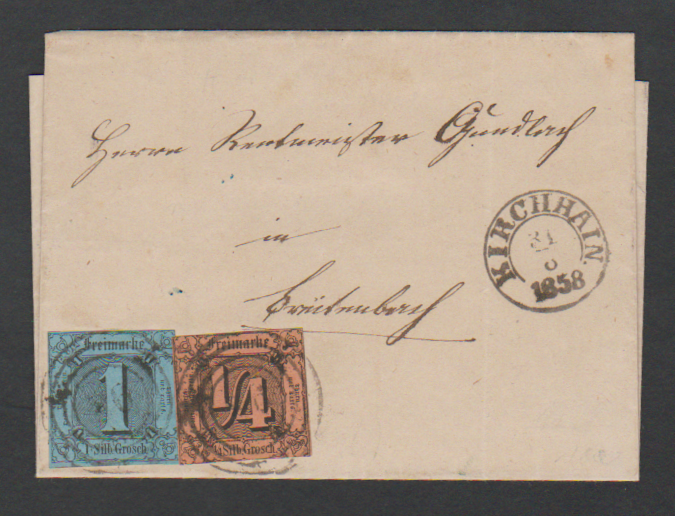 Herrn Rentmeister Gundlach
in
KIRCHHAIN.
31
8
1858
Freimarke
1
1 Silb. Grosch
Freimarke
1/4
1/4 Silb. Grosch